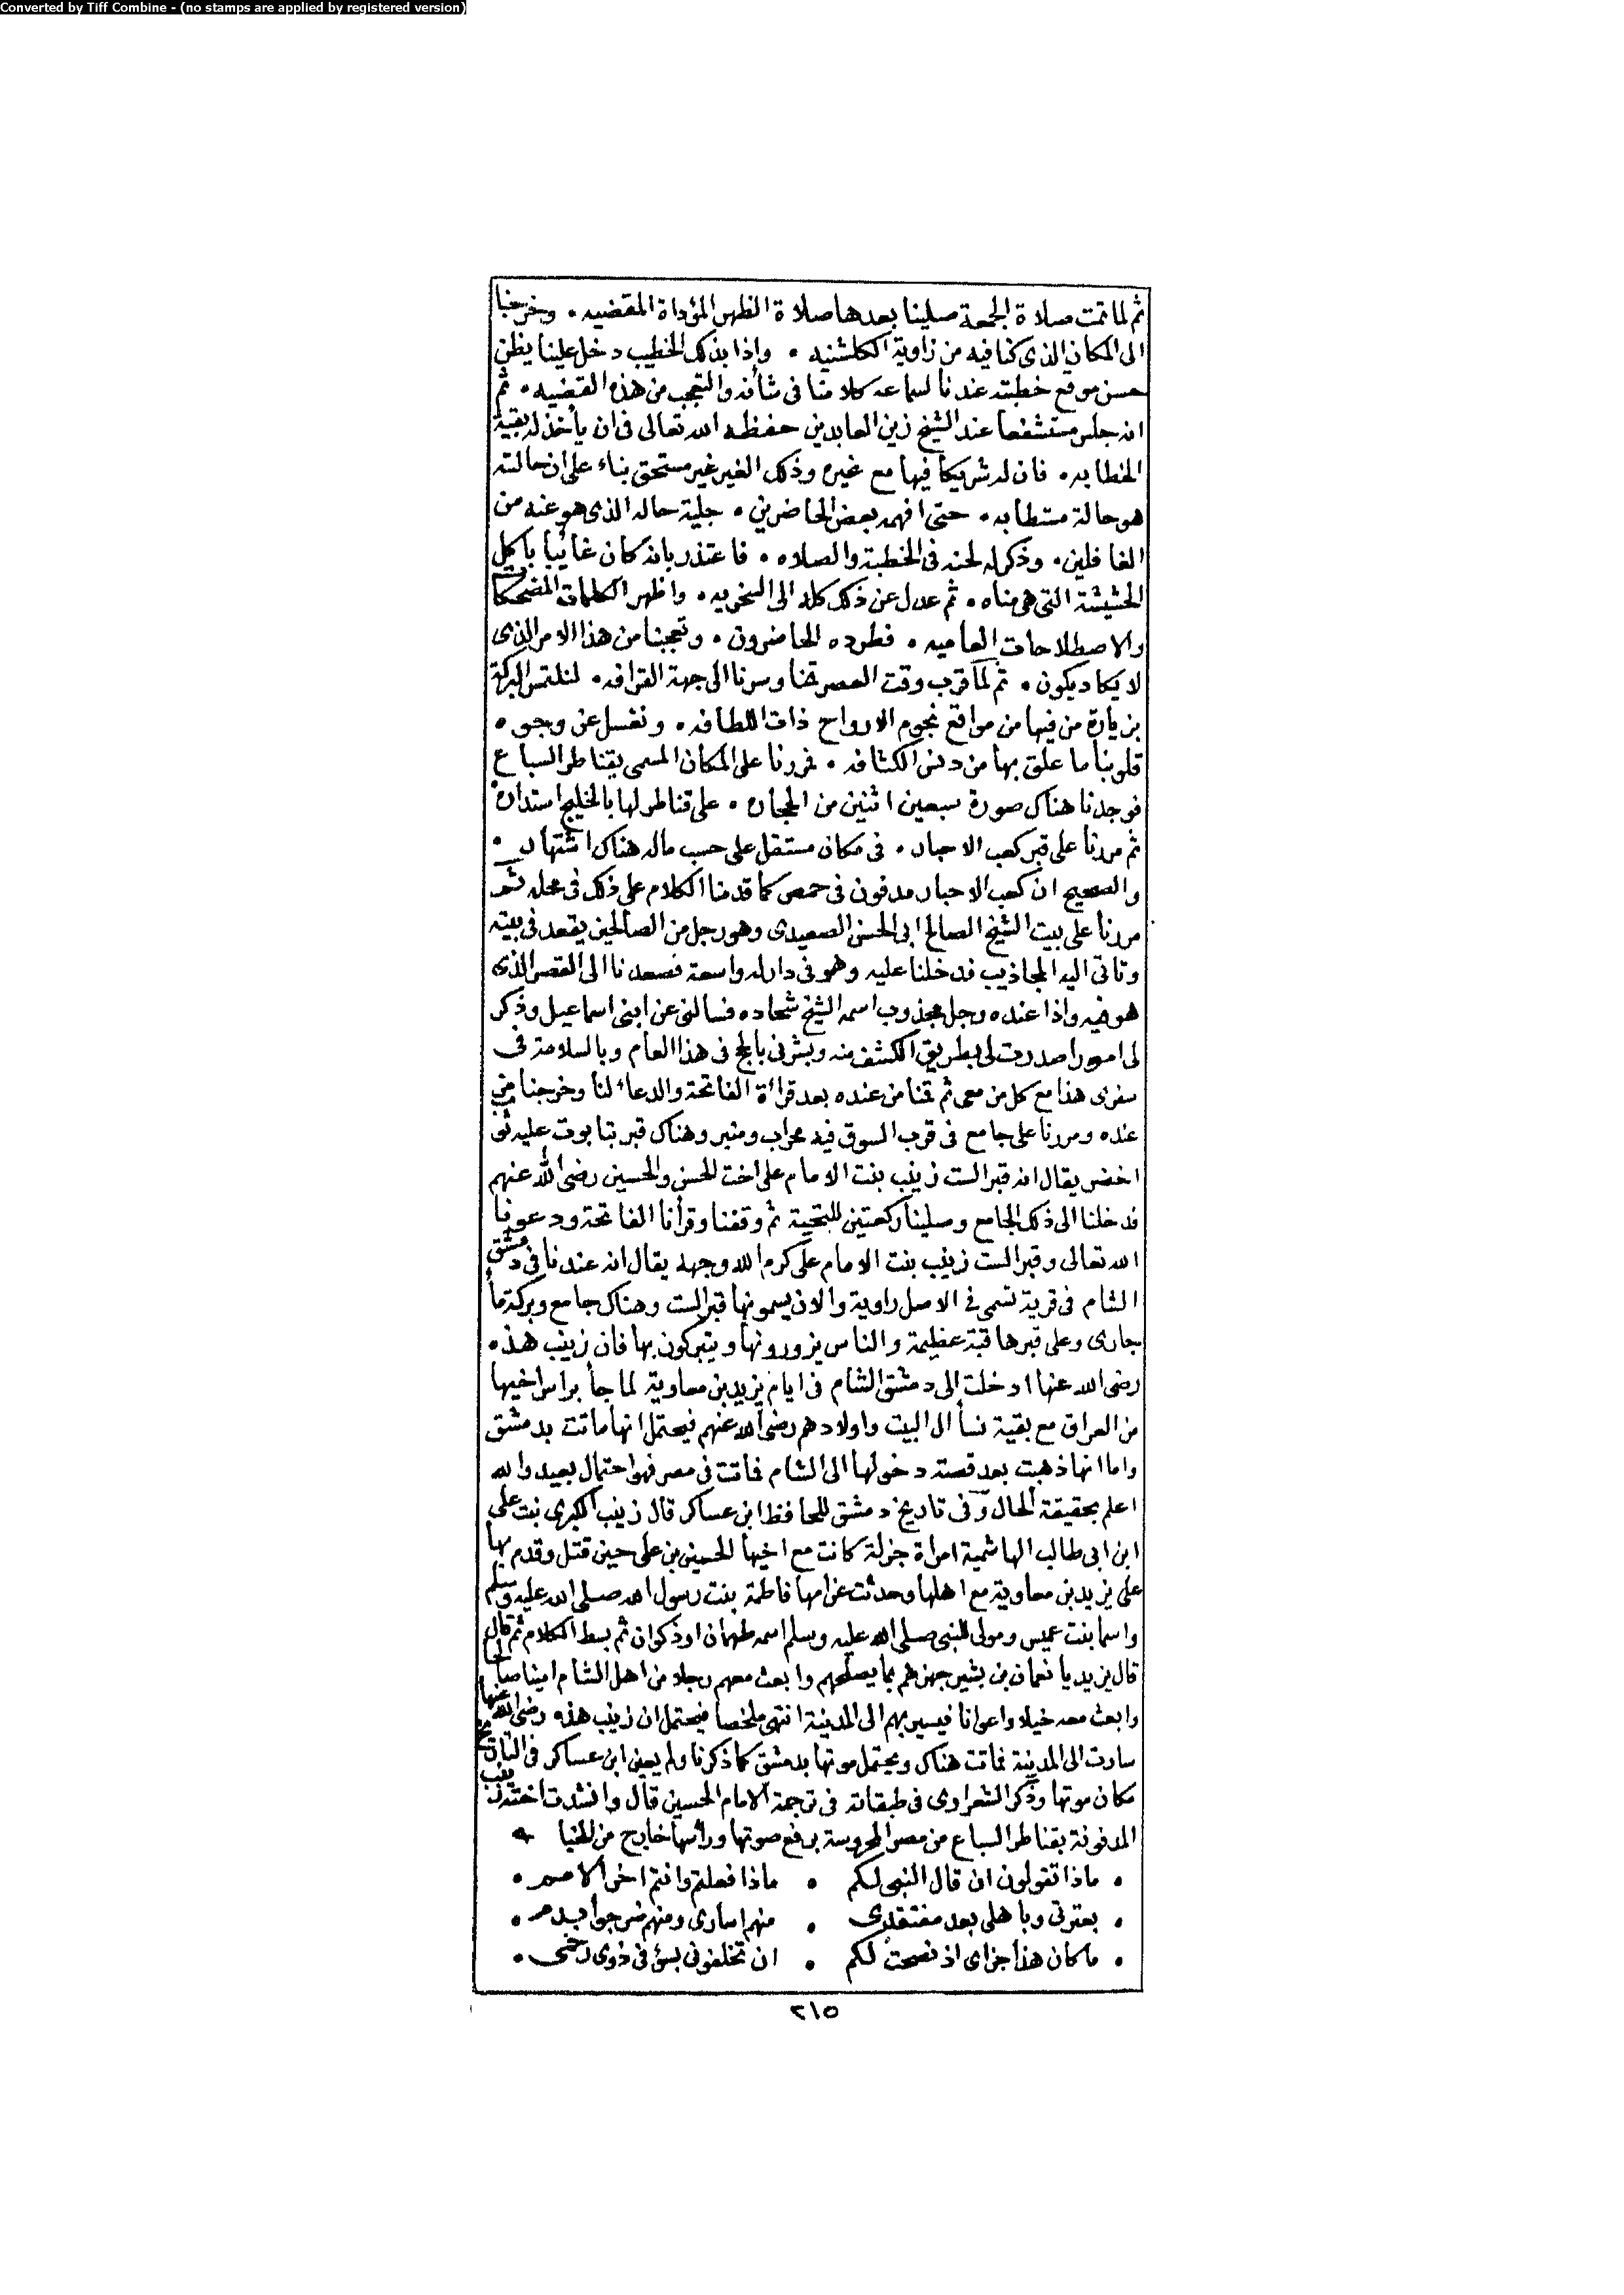 Converted by Tiff Combine - (no stamps are applied by registered version)
ثم لما تمت صلاة الجمعة صلينا بعدها صلاة الظهر المؤداة المقضيه • وخرجنا
الى المكان الذى كنا فيه من زاوية الكلشنيه • واذا بذلك الخطيب دخل علينا يظن
حسن موقع خطبته عندنا لسماعه كلامنا فى شأنه والتعجب من هذه القضيه • ثم
انه جلس مستشفعا عند الشيخ زين العابدين حفظه الله تعالى فى ان يأخذ له بقية
الخطابه • فان له شريكا فيها مع غيره وذلك الغير غير مستحق بناء على ان حالته
هو حالة مستطابه • حتى افهمه بعض الحاضرين • جلية حاله الذى هو عنه من
الغافلين • وذكر له لحنه فى الخطبة والصلاه • فاعتذر بانه كان غائبا باكل
الحشيشة التى هى مناه • ثم عدل عن ذلك كله الى السخريه • واظهر الكلمات المضحكا
والاصطلاحات العاميه • فطرده الحاضرون • وتعجبنا من هذا الامر الذى
لا يكاد يكون • ثم لما قرب وقت العصر قمنا وسرنا الى جهة القرافه • لنلتمس البركة
بزيارة من فيها من مواقع نجوم الارواح ذات اللطافه • ونغسل عن وجوه
قلوبنا ما علق بها من دنس الكثافه • فمررنا على المكان المسمى بقناطر السباع
فوجدنا هناك صورة سبعين اثنين من الحجاره • على قناطر لها بالخليج استداره
ثم مررنا على قبر كعب الاحبار • فى مكان مستقل على حسب ماله هناك اشتهار •
والصحيح ان كعب الاحبار مدفون فى حمص كما قدمنا الكلام على ذلك فى محله ثم
مررنا على بيت الشيخ الصالح ابى الحسن الصعيدى وهو رجل من الصالحين يقعد فى بيته
وتاتى اليه المجاذيب فدخلنا عليه وهو فى دار له واسعة فصعدنا الى القصر الذى
هو فيه واذا عنده رجل مجذوب اسمه الشيخ شحاده فسالنى عن ابنى اسماعيل وذكر
لى امورا صدرت لى بطريق الكشف منه وبشرنى بالحج فى هذا العام وبالسلامة فى
سفرى هذا مع كل من معى ثم قمنا من عنده بعد قراة الفاتحة والدعاء لنا وخرجنا من
عنده ومررنا على جامع فى قرب السوق فيه محراب ومنبر وهناك قبر بتابوت عليه ثوب
اخضر يقال انه قبر الست زينب بنت الامام على اخت الحسن والحسين رضى الله عنهم
فدخلنا الى ذلك الجامع وصلينا ركعتين للتحية ثم وقفنا وقرأنا الفاتحة ودعونا
الله تعالى وقبر الست زينب بنت الامام على كرم الله وجهه يقال انه عندنا فى دمشق
الشام فى قرية تسمى فى الاصل راوية والان يسمونها قبر الست وهناك جامع وبركة ماء
جارى وعلى قبرها قبة عظيمة والناس يزورونها ويتبركون بها فان زينب هذه
رضى الله عنها ادخلت الى دمشق الشام فى ايام يزيد بن معاوية لما جأ براس اخيها
من العراق مع بقية نسأ ال البيت واولادهم رضى الله عنهم فيحتمل انها ماتت بدمشق
واما انها ذهبت بعد قصة دخولها الى الشام فماتت فى مصر فهو احتمال بعيد والله
اعلم بحقيقة الحال وفى تاريخ دمشق للحافظ ابن عساكر قال زينب الكبرى بنت على
ابن ابى طالب الهاشمية امراة جزلة كانت مع اخيها الحسين بن على حين قتل وقدم بها
على يزيد بن معاوية مع اهلها وحدثت عن امها فاطمة بنت رسول الله صلى الله عليه وسلم
واسما بنت عميس ومولى للنبى صلى الله عليه وسلم اسمه طهمان او ذكوان ثم بسط الكلام ثم قال
قال يزيد يا نعمان بن بشير جهزهم بما يصلحهم وابعث معهم رجلا من اهل الشام امينا صالحا
وابعث معه خيلا واعوانا فيسير بهم الى المدينة انتهى ملخصا فيحتمل ان زينب هذه رضى الله عنها
سارت الى المدينة فماتت هناك ويحتمل موتها بدمشق كما ذكرنا ولم يعين ابن عساكر فى التاريخ
مكان موتها وذكر الشعراوى فى طبقاته فى ترجمة الامام الحسين قال وانشدت اخته زينب
المدفونة بقناطر السباع من مصر المحروسة برفع صوتها ورأسها خارج من الخبا
• ماذا تقولون ان قال النبى لكم • ماذا فعلتم وانتم اخر الامم •
• بعترتى وباهلى بعد مفتقدى • منهم اسارى ومنهم ضرجوا بدم •
• ما كان هذا جزاى اذ نصحت لكم • ان تخلفونى بسؤ فى ذوى رحمى •
٢١٥